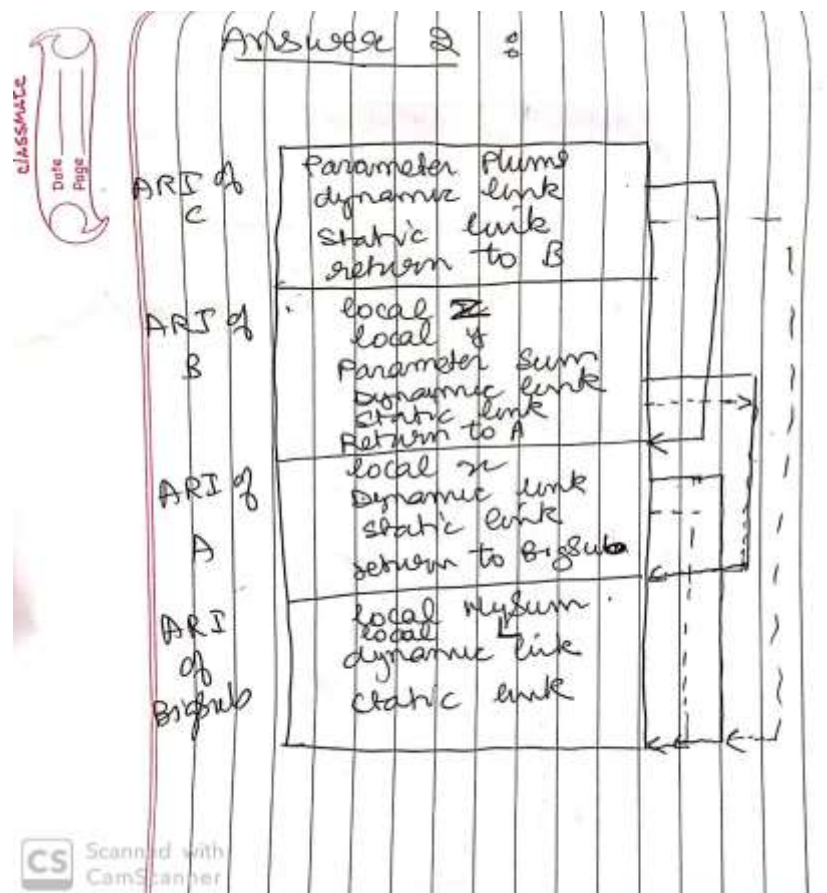 classmate
Date
Page
Answer 2 :
ARI of
C
Parameter Plums
dynamic link
static link
return to B
ARI of
B
local Z
local y
Parameter Sum
Dynamic link
Static link
Return to A
ARI of
A
local x
Dynamic link
static link
return to BigSub
ARI
of
BigSub
local MySum
local L
dynamic link
static link
CS Scanned with
CamScanner